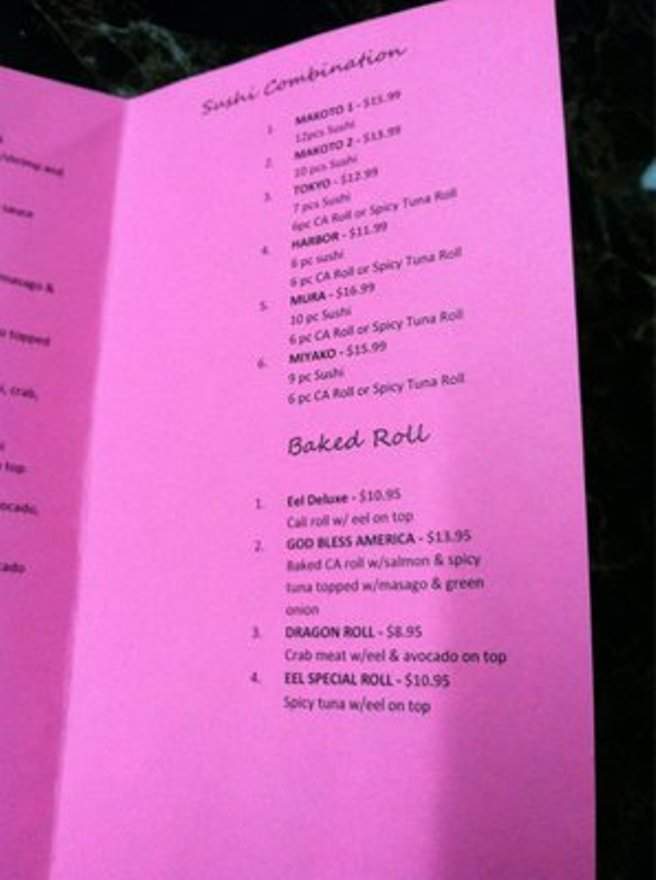 shrimp and
sauce
masago &
topped
crab,
top
cado
Sushi Combination
1. MAKOTO 1 - $15.99
12pcs Sushi
2. MAKOTO 2 - $13.99
10 pcs Sushi
3. TOKYO - $12.99
7 pcs Sushi
6pc CA Roll or Spicy Tuna Roll
4. HARBOR - $11.99
6 pc sushi
6 pc CA Roll or Spicy Tuna Roll
5. MURA - $16.99
10 pc Sushi
6 pc CA Roll or Spicy Tuna Roll
6. MIYAKO - $15.99
9 pc Sushi
6 pc CA Roll or Spicy Tuna Roll
Baked Roll
1. Eel Deluxe - $10.95
Cali roll w/ eel on top
2. GOD BLESS AMERICA - $13.95
Baked CA roll w/salmon & spicy
tuna topped w/masago & green
onion
3. DRAGON ROLL - $8.95
Crab meat w/eel & avocado on top
4. EEL SPECIAL ROLL - $10.95
Spicy tuna w/eel on top